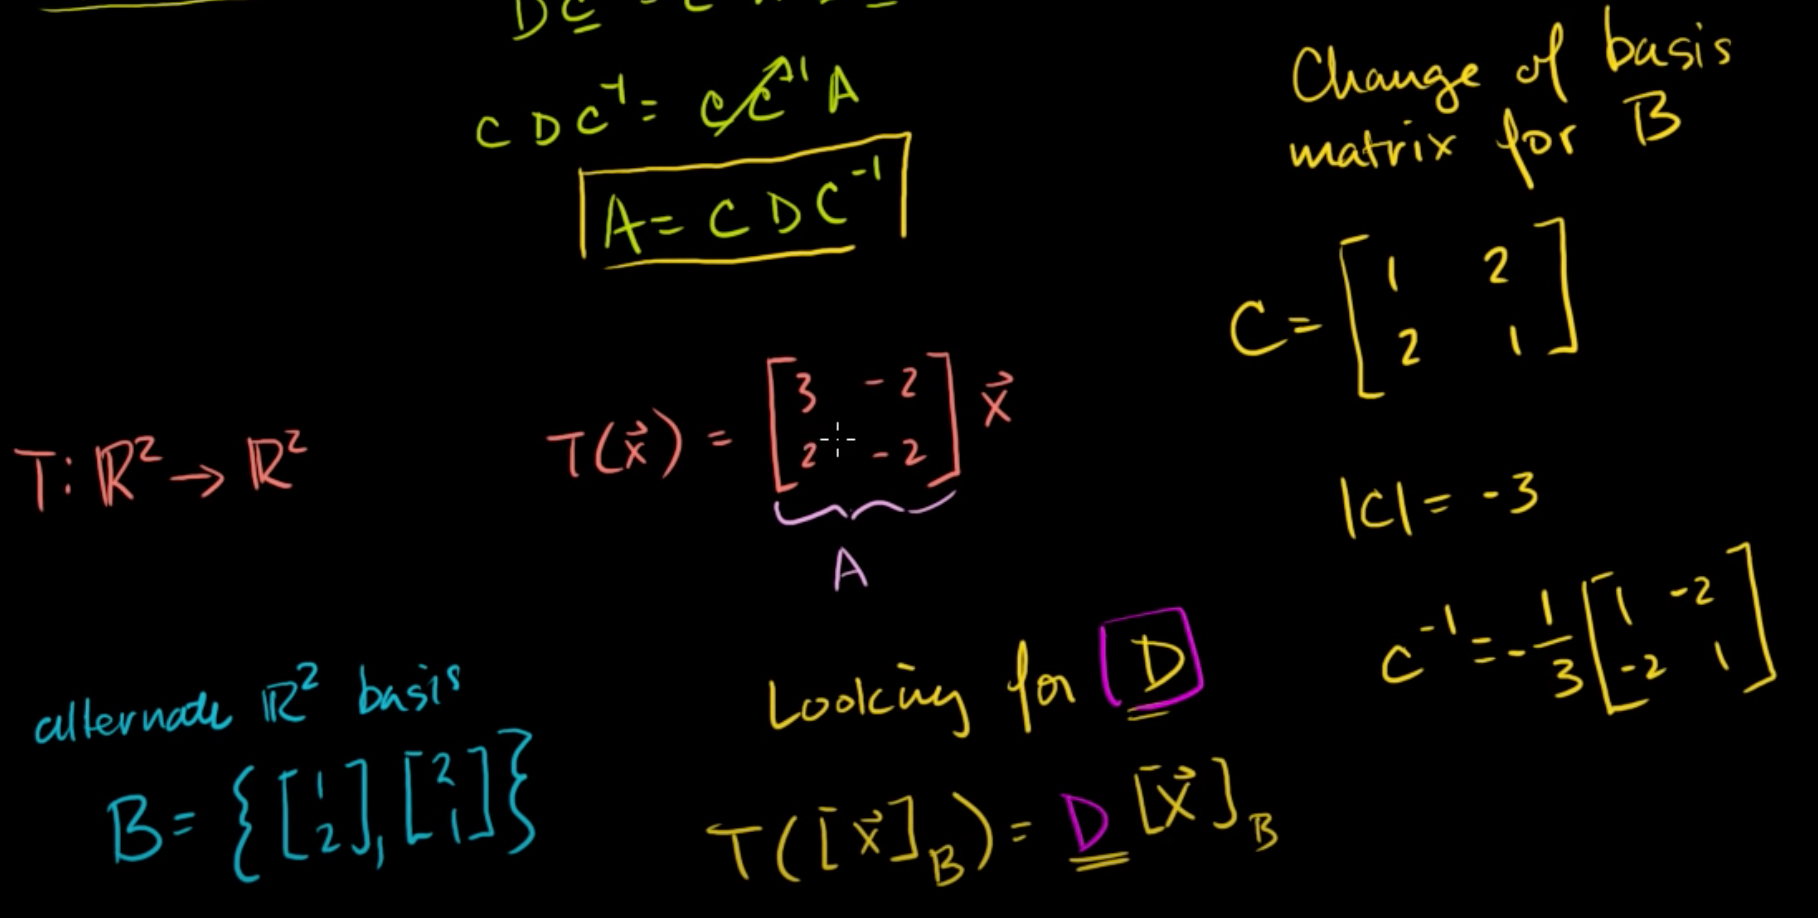 C D C⁻¹ = C C⁻¹ A
A = C D C⁻¹
Change of basis
matrix for B
C = [1 2
2 1]
T: ℝ² → ℝ²
T(x⃗) = [3 -2
2 -2] x⃗
A
|C| = -3
C⁻¹ = -1/3 [1 -2
-2 1]
alternate ℝ² basis
B = {[1
2], [2
1]}
Looking for D
T([x⃗]_B) = D [x⃗]_B